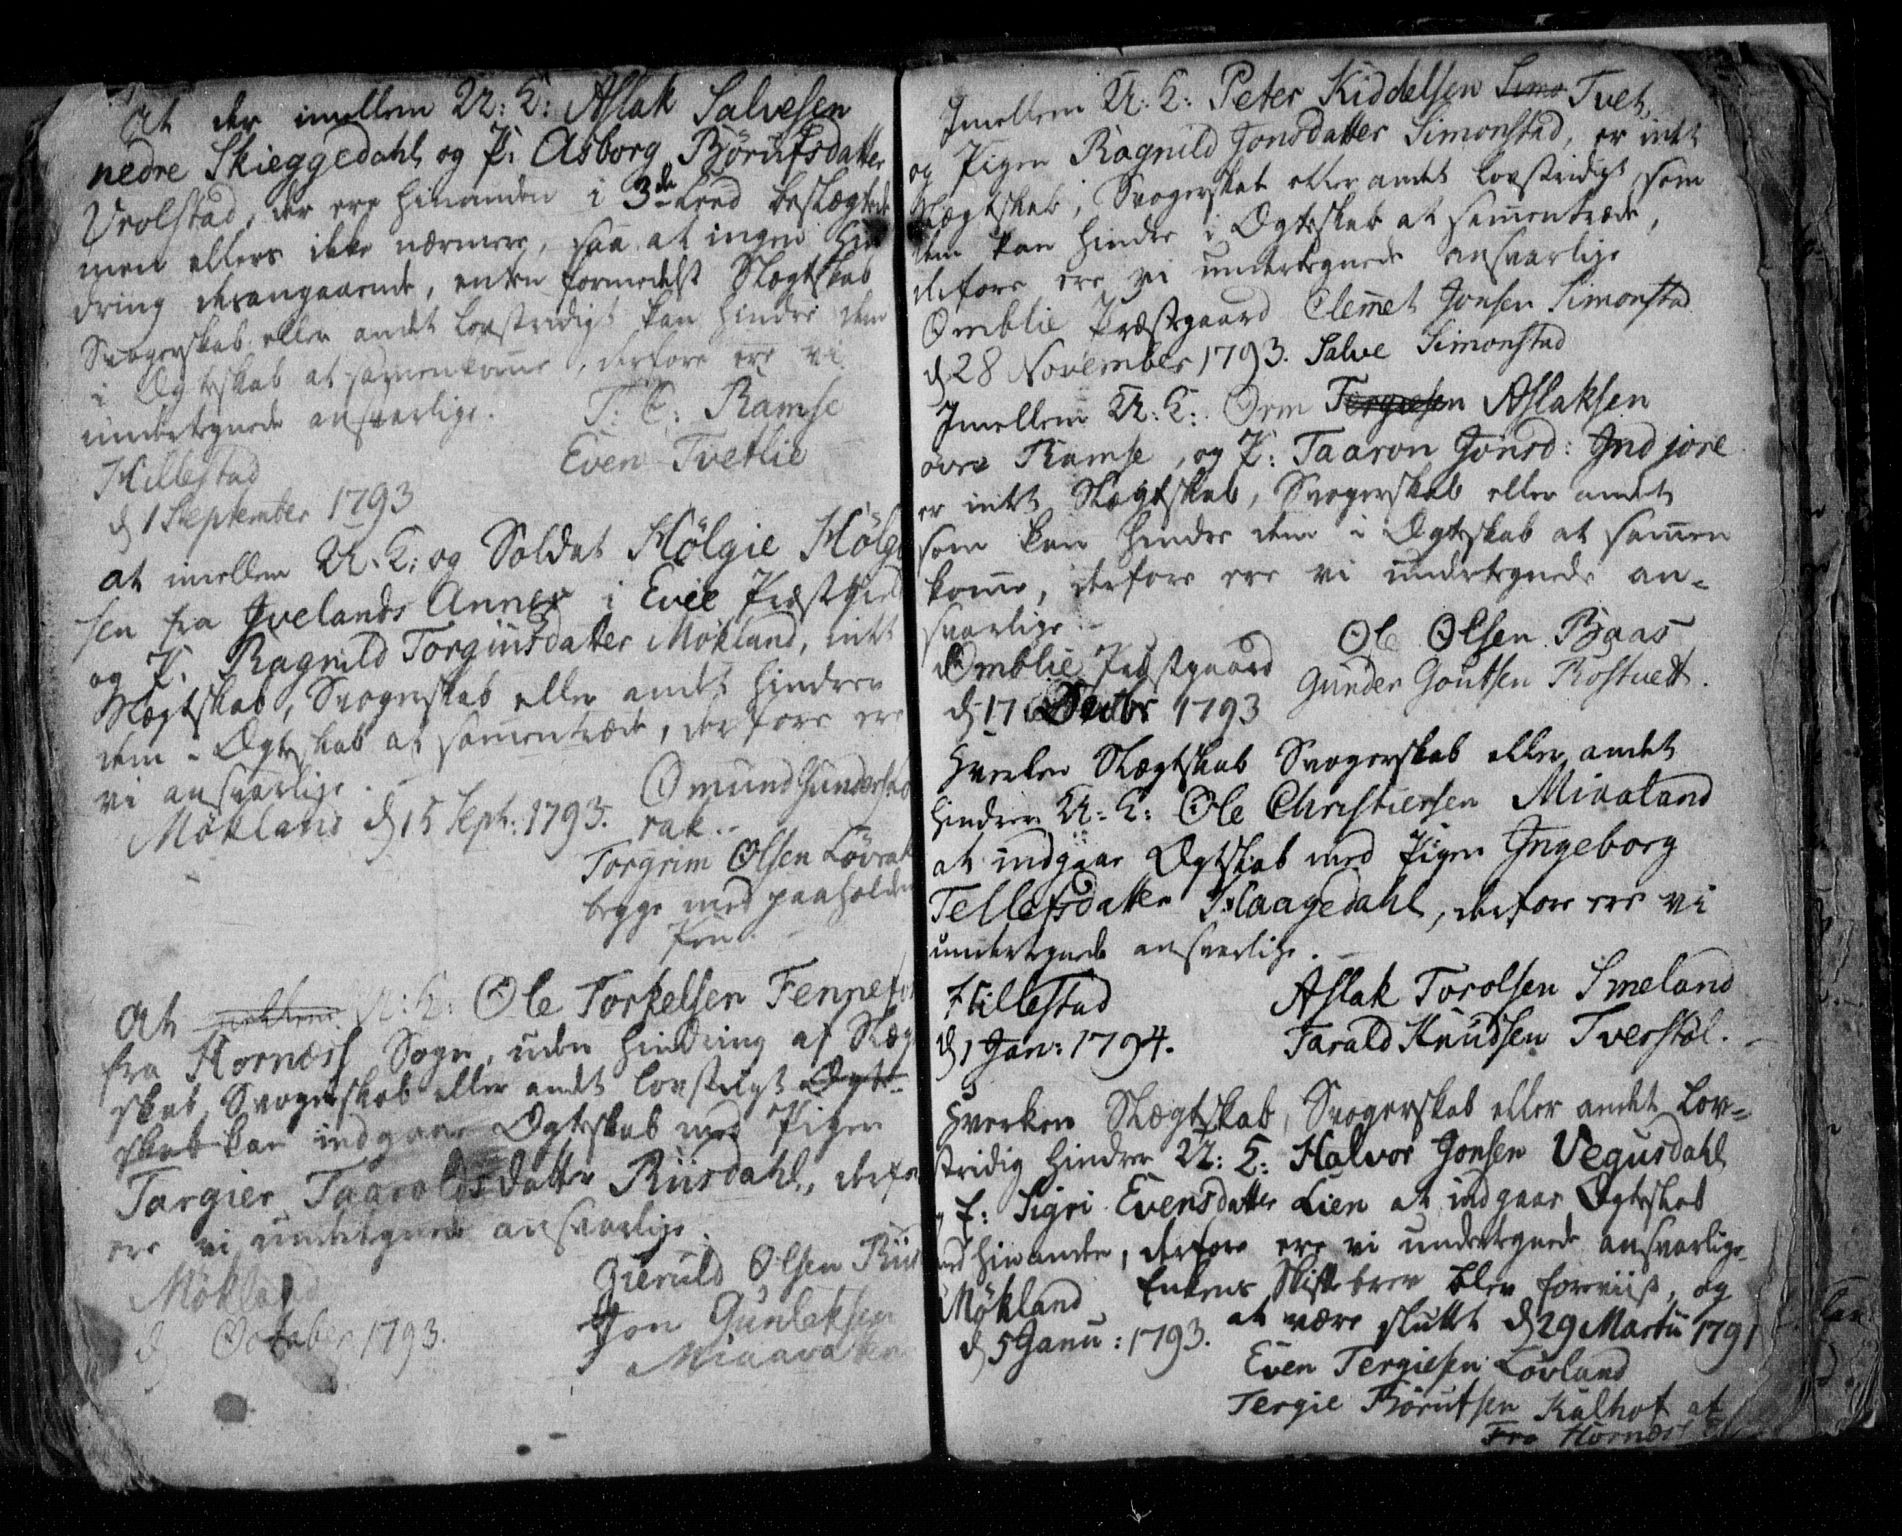 At der imellem U: K: Aslak Salvesen
nedre Skieggedahl og P: Asborg Börufsdatter
Vrolstad, der ere hinanden i 3de Leed beslægtede
men ellers ikke nærmere, saa at ingen Hin
dring derangaaende, enten formedelst Slægtskab
Svogerskab eller andet lovstridigt kan hindre dem
i Ægteskab at sammenkomme, derfore ere vi
undertegnede ansvarlige.
Hillestad
d 1 September 1793
T: C: Ramse
Even Tvetlie
at imellem U: K: og Soldat Hølgie Hølgi
sen fra Ivelands Annex i Evie Præstegield
og P. Ragnild Torgiusdatter Mökland, intet
Slægtskab, Svogerskab eller andet hindrer
dem i Ægteskab at sammentræde, derfore ere
vi ansvarlige.
Mökland d 15 Sept: 1793.
Omund Gunderse Løv
rak.
Torgrim Olsen Løvrak
begge med paaholden
Pen.
At imellem U: K: Ole Torkelsen Fennefos
fra Hornæss Sogn, uden Hindring af Slægt
skab, Svogerskab eller andet lovstridigt Ægte-
skab kan indgaae Ægteskab med Pigen
Targier Taaroldsdatter Riisdahl, derfore
ere vi undertegnede ansvarlige.
Mökland
d October 1793.
Gieruld Olsen Riis
Jon Gunleksen
Miaavaten
Imellem U: K: Peter Kiddelsen Simo Tvet,
og Pigen Ragnild Jonsdatter Simonstad, er intet
Slægtskab, Svogerskab eller andet lovstridigt som
dem kan hindre i Ægteskab at sammentræde,
derfore ere vi undertegnede ansvarlige
Omblie Præstegaard Clemet Jonsen Simonstad
d 28 November 1793. Salve Simonstad
Imellem U: K: Orm Tergiesen Aslaksen
øvre Ramse, og P: Taaron Jonsd: Indjore
er intet Slægtskab, Svogerskab eller andet
som kan hindre dem i Ægteskab at sammen
komme, derfore ere vi undertegnede an-
svarlige
Omblie Præstgaard
d 17 Decbr 1793
Ole Olsen Baas
Gunder Goutsen Rostvett.
Hverken Slægtskab Svogerskab eller andet
hindrer U: K: Ole Christiensen Mivaland
at indgaae Ægteskab med Pigen Ingeborg
Tellefsdatter Haagedahl, derfore ere vi
undertegnede ansvarlige.
Hillestad
d 1 Jan: 1794.
Aslak Torolsen Smeland
Tarald Knudsen Tverstøl.
Hverken Slægtskab, Svogerskab eller andet lov-
stridig hindrer U: K: Halvor Jonsen Vegusdahl
og E: Sigri Evensdatter Lien at indgaae Ægteskab
med hinanden, derfore ere vi undertegnede ansvarlige
Mökland
d 5 Janu: 1793.
Enkens Skiftebrev blev foreviist, og
at være sluttet d 29 Martii 1791
Even Tergiesen Lövland
Tergie Börufsen Kalhof at
Fra Hornæss